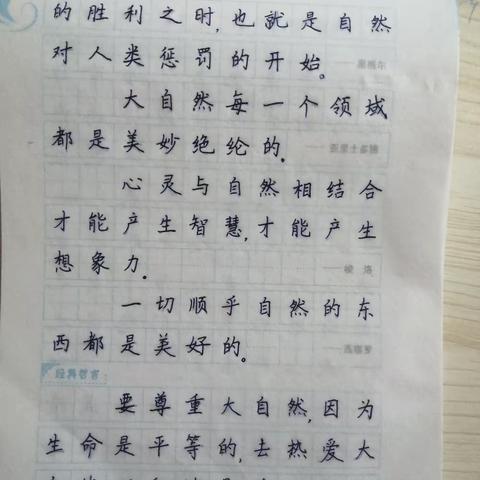 的胜利之时,也就是自然
对人类惩罚的开始。
黑格尔
大自然每一个领域
都是美妙绝伦的。
——亚里士多德
心灵与自然相结合
才能产生智慧,才能产生
想象力。
——梭 洛
一切顺乎自然的东
西都是美好的。
西塞罗
经典哲言:
要尊重大自然,因为
生命是平等的,去热爱大